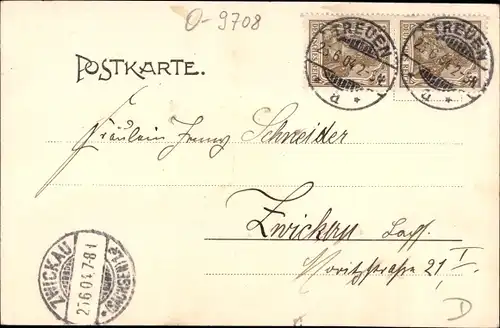 O-9708
TREUEN
25.6.04.7-8
TREUEN
POSTKARTE.
Fräulein Jenny Schneider
Zwickau Sachs.
Moritzstraße 21 I.
ZWICKAU
25.6.04.7-8
D